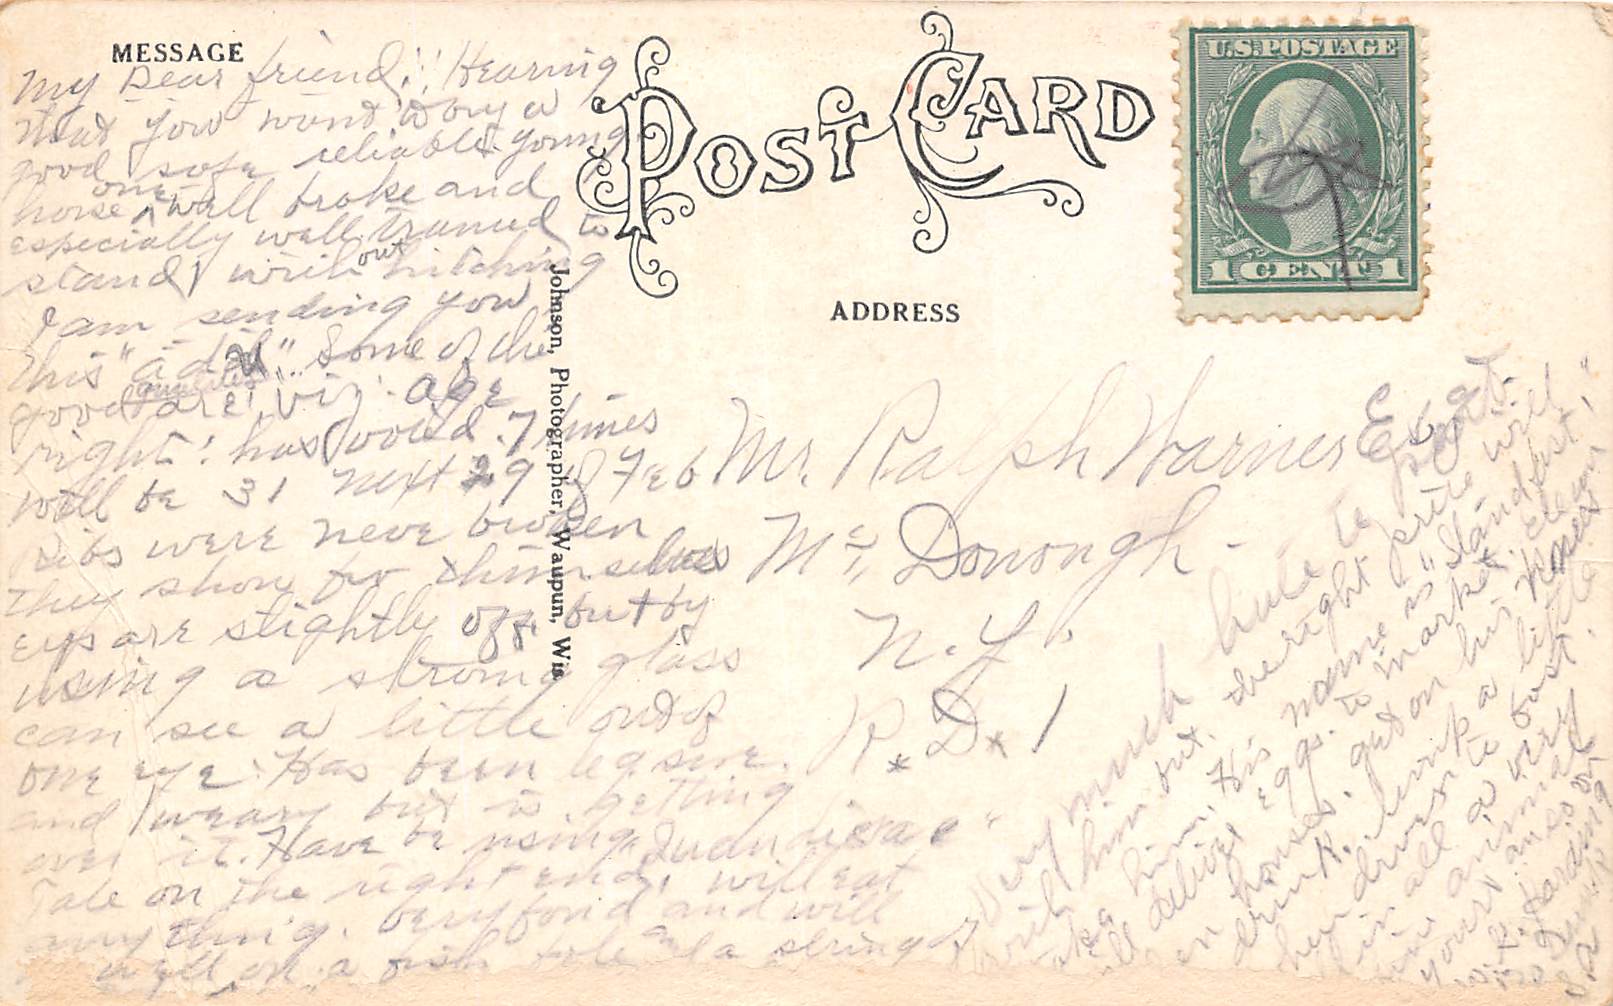 MESSAGE
POST CARD
U.S. POSTAGE
1 CENT 1
ADDRESS
Johnson, Photographer, Waupun, Wis.
My Dear friend; Hearing
that you want to buy a
good safe reliable young
horse, one well broke and
especially well trained to
stand without hitching
I am sending you
this "ad". Some of the
good qualities are; viz: age
right; has voted 7 times
will be 31 next 29 of Feb
Ribs were never broken
They show for themselves
Eys are slightly off, but by
using a strong glass
can see a little out of
one eye. Has been leg sore.
and weary but is getting
over it. Have be using
Tale on the right end, will eat
any thing. Very fond and will
well on a fish tole and a string of
Mr. Ralph Warner Esq
Mc, Donough -
N. Y.
R. D. 1
Very much hate to part
with him but the right price will
take him. His name is "Standfast"
will deliver eggs to market
drink. get on his
her driver to boot.
in all a very
fine animal
yours